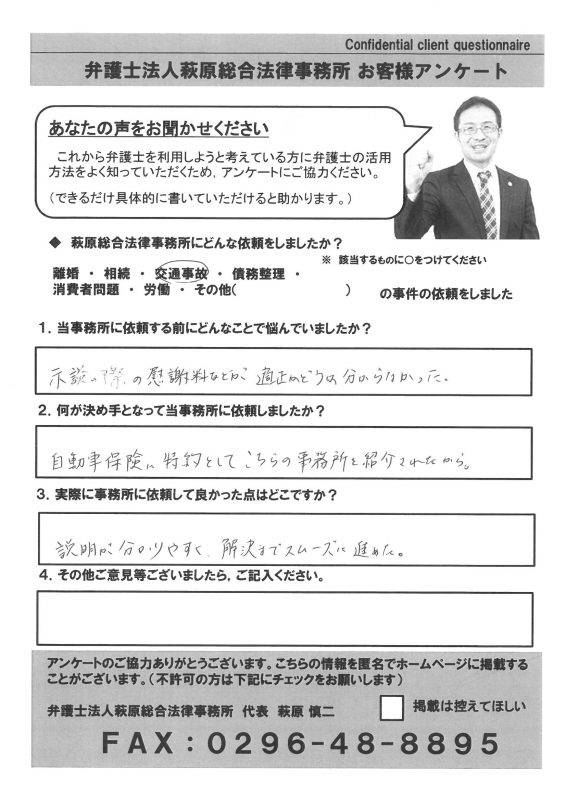 Confidential client questionnaire
弁護士法人萩原総合法律事務所 お客様アンケート
あなたの声をお聞かせください
これから弁護士を利用しようと考えている方に弁護士の活用
方法をよく知っていただくため，アンケートにご協力ください。
（できるだけ具体的に書いていただけると助かります。）
◆ 萩原総合法律事務所にどんな依頼をしましたか？
※ 該当するものに○をつけてください
離婚 ・ 相続 ・ 交通事故 ・ 債務整理 ・
消費者問題 ・ 労働 ・ その他( ) の事件の依頼をしました
1．当事務所に依頼する前にどんなことで悩んでいましたか？
示談の際の慰謝料などが 適正かどうか分からなかった。
2．何が決め手となって当事務所に依頼しましたか？
自動車保険に特約としてこちらの事務所を紹介されたから。
3．実際に事務所に依頼して良かった点はどこですか？
説明が分かりやすく、解決までスムーズに進めた。
4．その他ご意見等ございましたら，ご記入ください。
アンケートのご協力ありがとうございます。こちらの情報を匿名でホームページに掲載する
ことがございます。（不許可の方は下記にチェックをお願いします）
弁護士法人萩原総合法律事務所 代表 萩原 慎二
掲載は控えてほしい
FAX：0296-48-8895